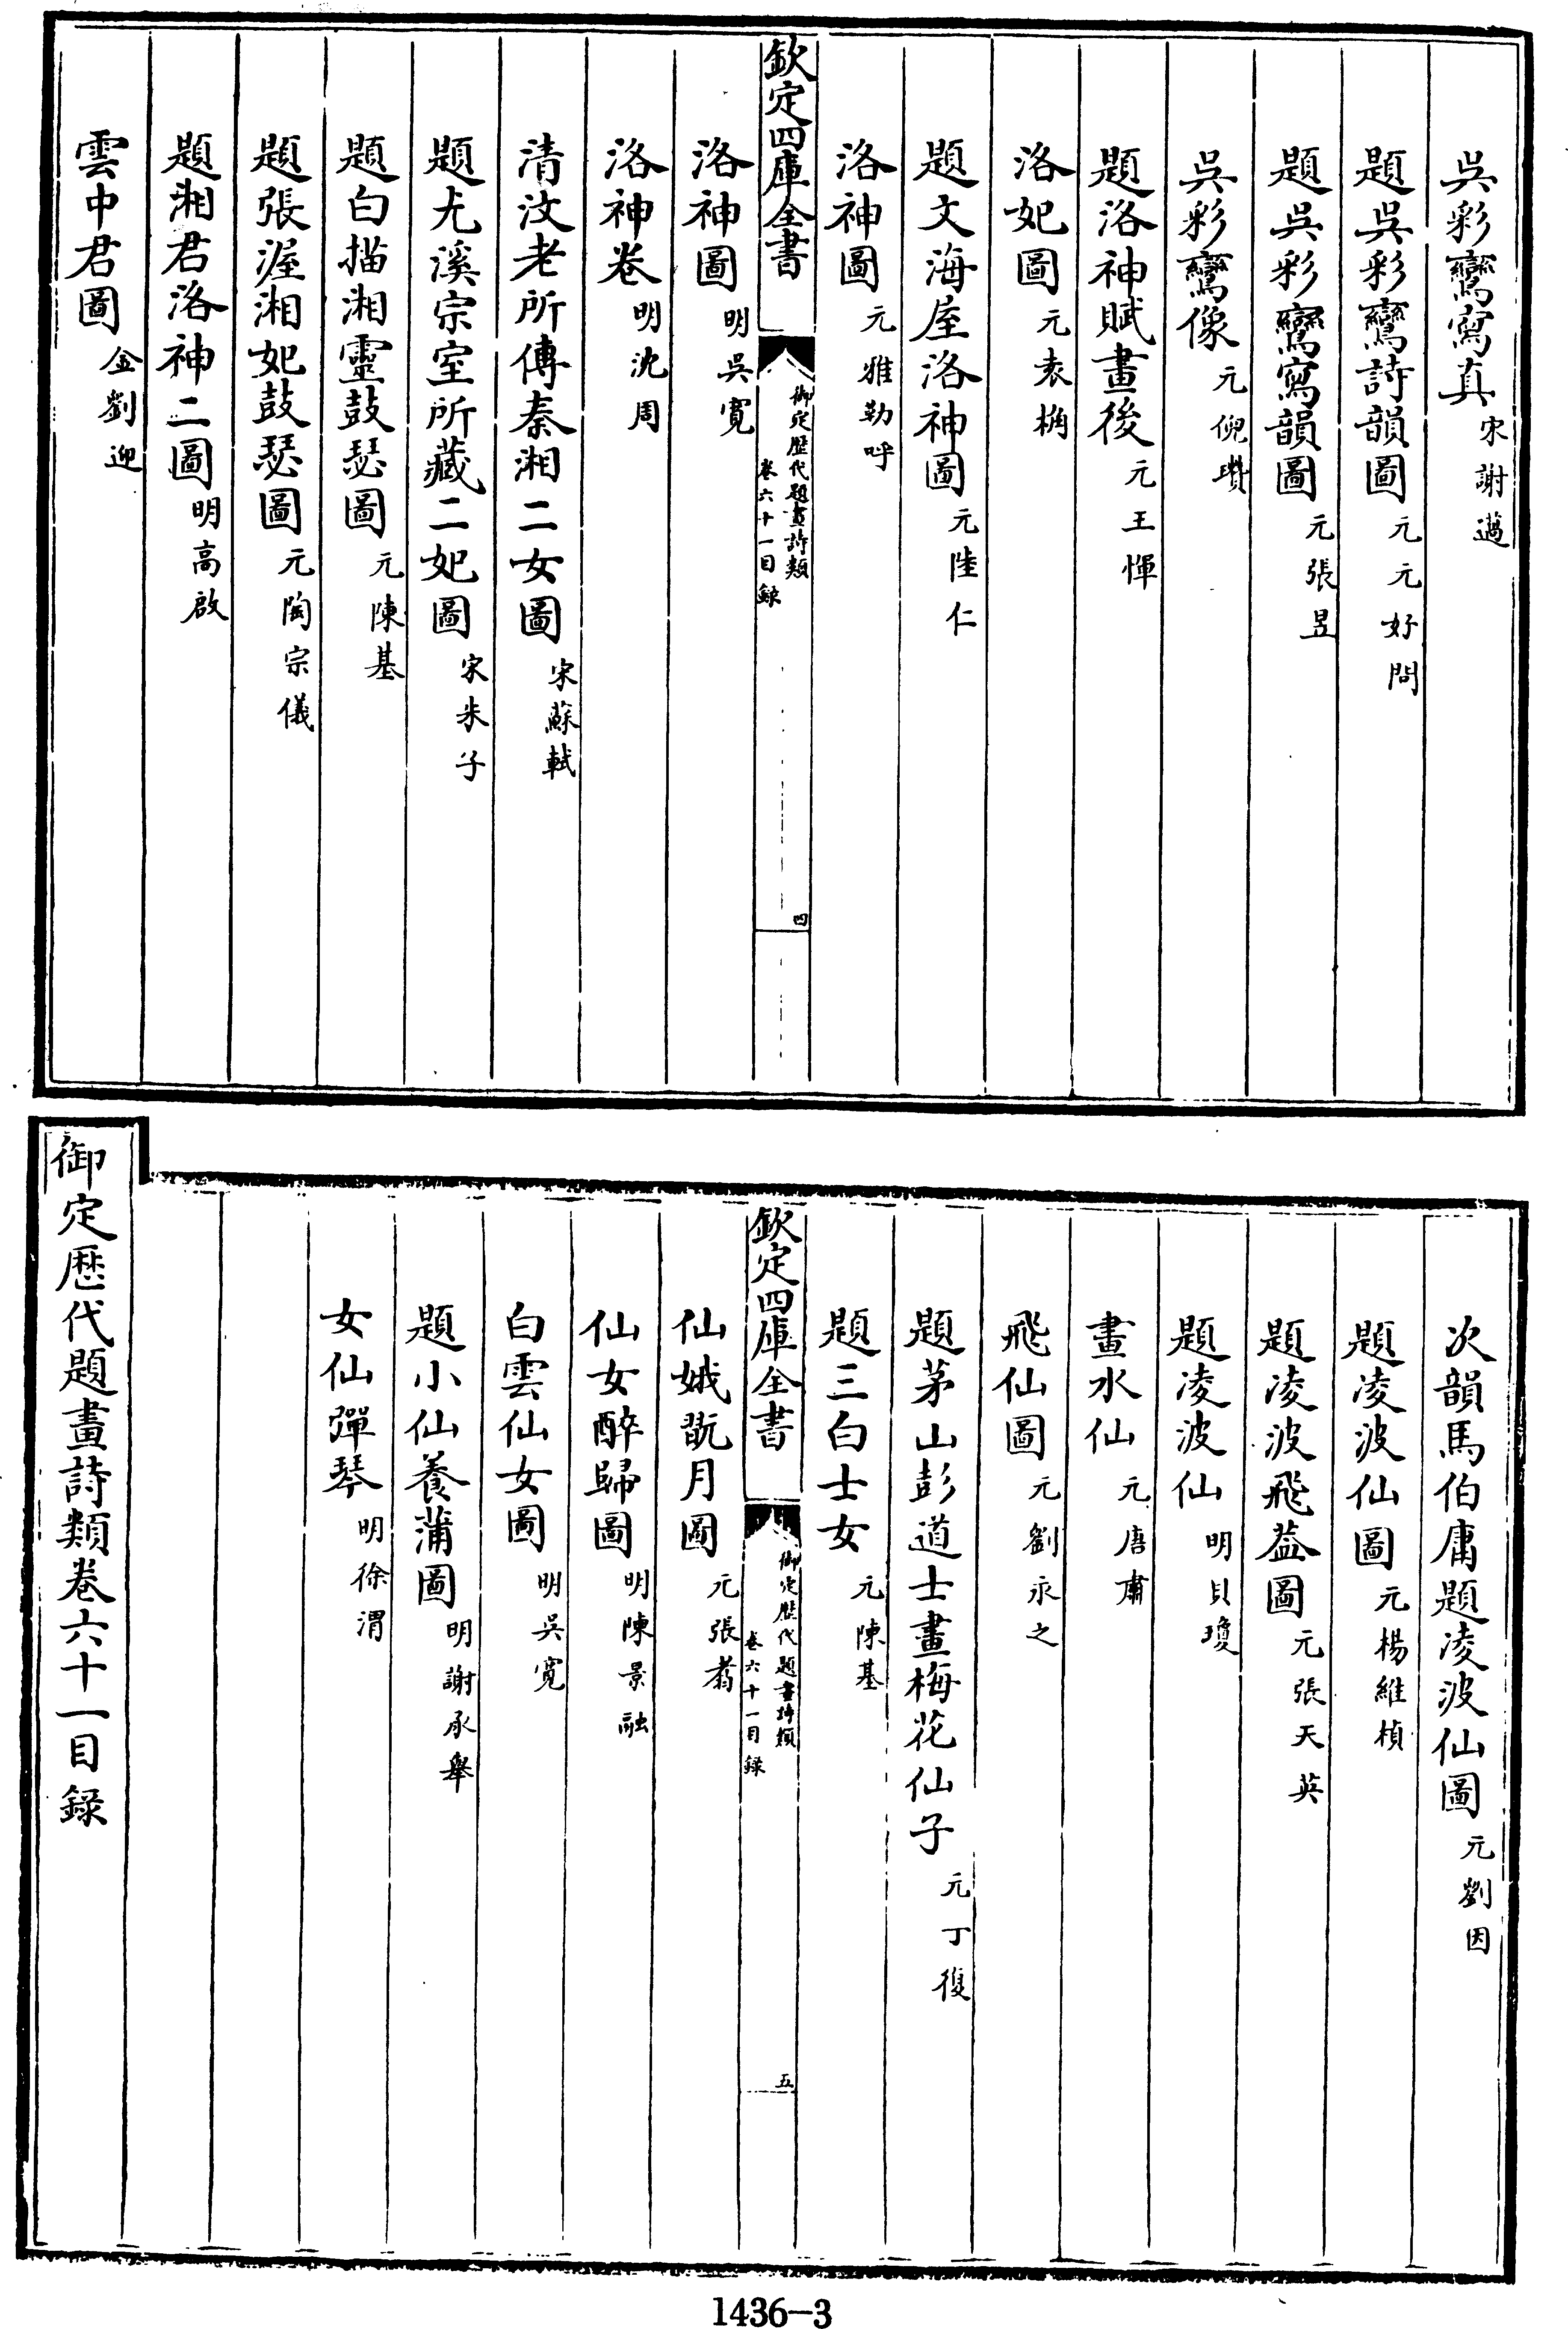 吳彩鸞寫真宋謝薖
題吳彩鸞詩韻圖元元好問
題吳彩鸞寫韻圖元張昱
吳彩鸞像元倪瓚
題洛神賦畫後元王惲
洛妃圖元袁桷
題文海屋洛神圖元陸仁
洛神圖元雅勒呼
欽定四庫全書
御定歴代題畫詩類
卷六十一目録
四
洛神圖明吳寛
洛神卷明沈周
清汶老所傳秦湘二女圖宋蘇軾
題尤溪宗室所藏二妃圖宋朱子
題白描湘靈鼓瑟圖元陳基
題張渥湘妃鼓瑟圖元陶宗儀
題湘君洛神二圖明高啟
雲中君圖金劉迎
次韻馬伯庸題凌波仙圖元劉因
題凌波仙圖元楊維楨
題凌波飛葢圖元張天英
題凌波仙明貝瓊
畫水仙元唐肅
飛仙圖元劉永之
題茅山彭道士畫梅花仙子元丁復
題三白士女元陳基
欽定四庫全書
御定歴代題畫詩類
卷六十一目録
五
仙娥翫月圖元張翥
仙女醉歸圖明陳景融
白雲仙女圖明吳寛
題小仙養蒲圖明謝承舉
女仙彈琴明徐渭
御定歴代題畫詩類卷六十一目録
1436-3